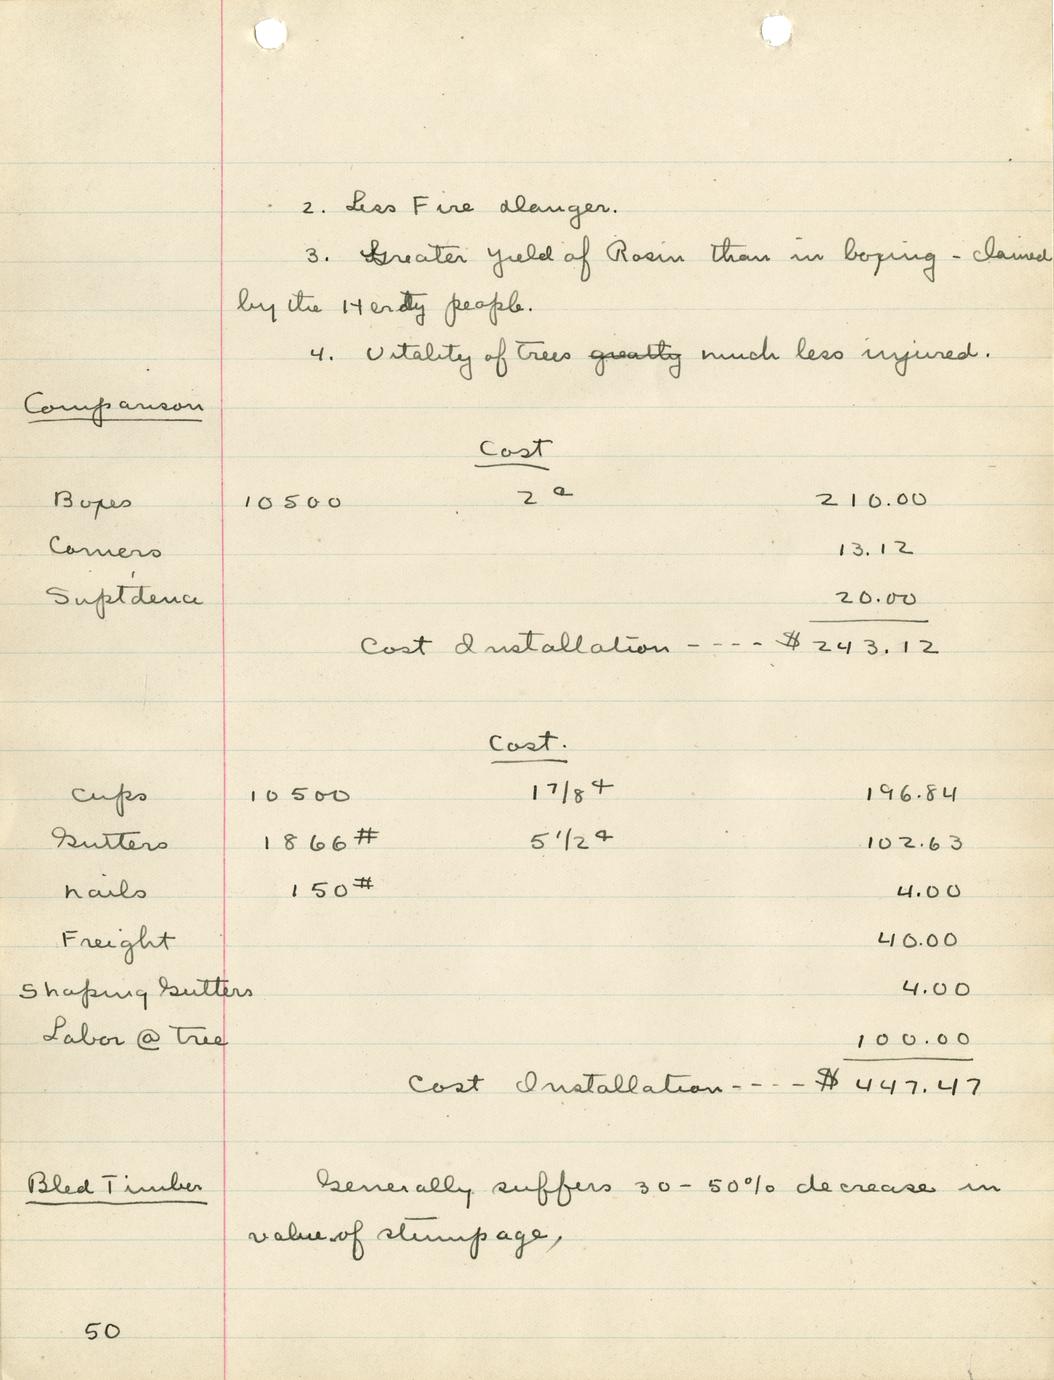 2. Less Fire danger.
3. Greater yield of Rosin than in boxing - claimed
by the Herty people.
4. Vitality of trees greatly much less injured.
Comparison
Cost
Boxes 10500 2¢ 210.00
Corners 13.12
Supt'dence 20.00
Cost Installation ---- $ 243.12
Cost.
Cups 10500 1 7/8¢ 196.84
Gutters 1866# 5 1/2¢ 102.63
Nails 150# 4.00
Freight 40.00
Shaping Gutters 4.00
Labor @ tree 100.00
Cost Installation ---- $ 447.47
Bled Timber Generally suffers 30-50% decrease in
value of stumpage,
50